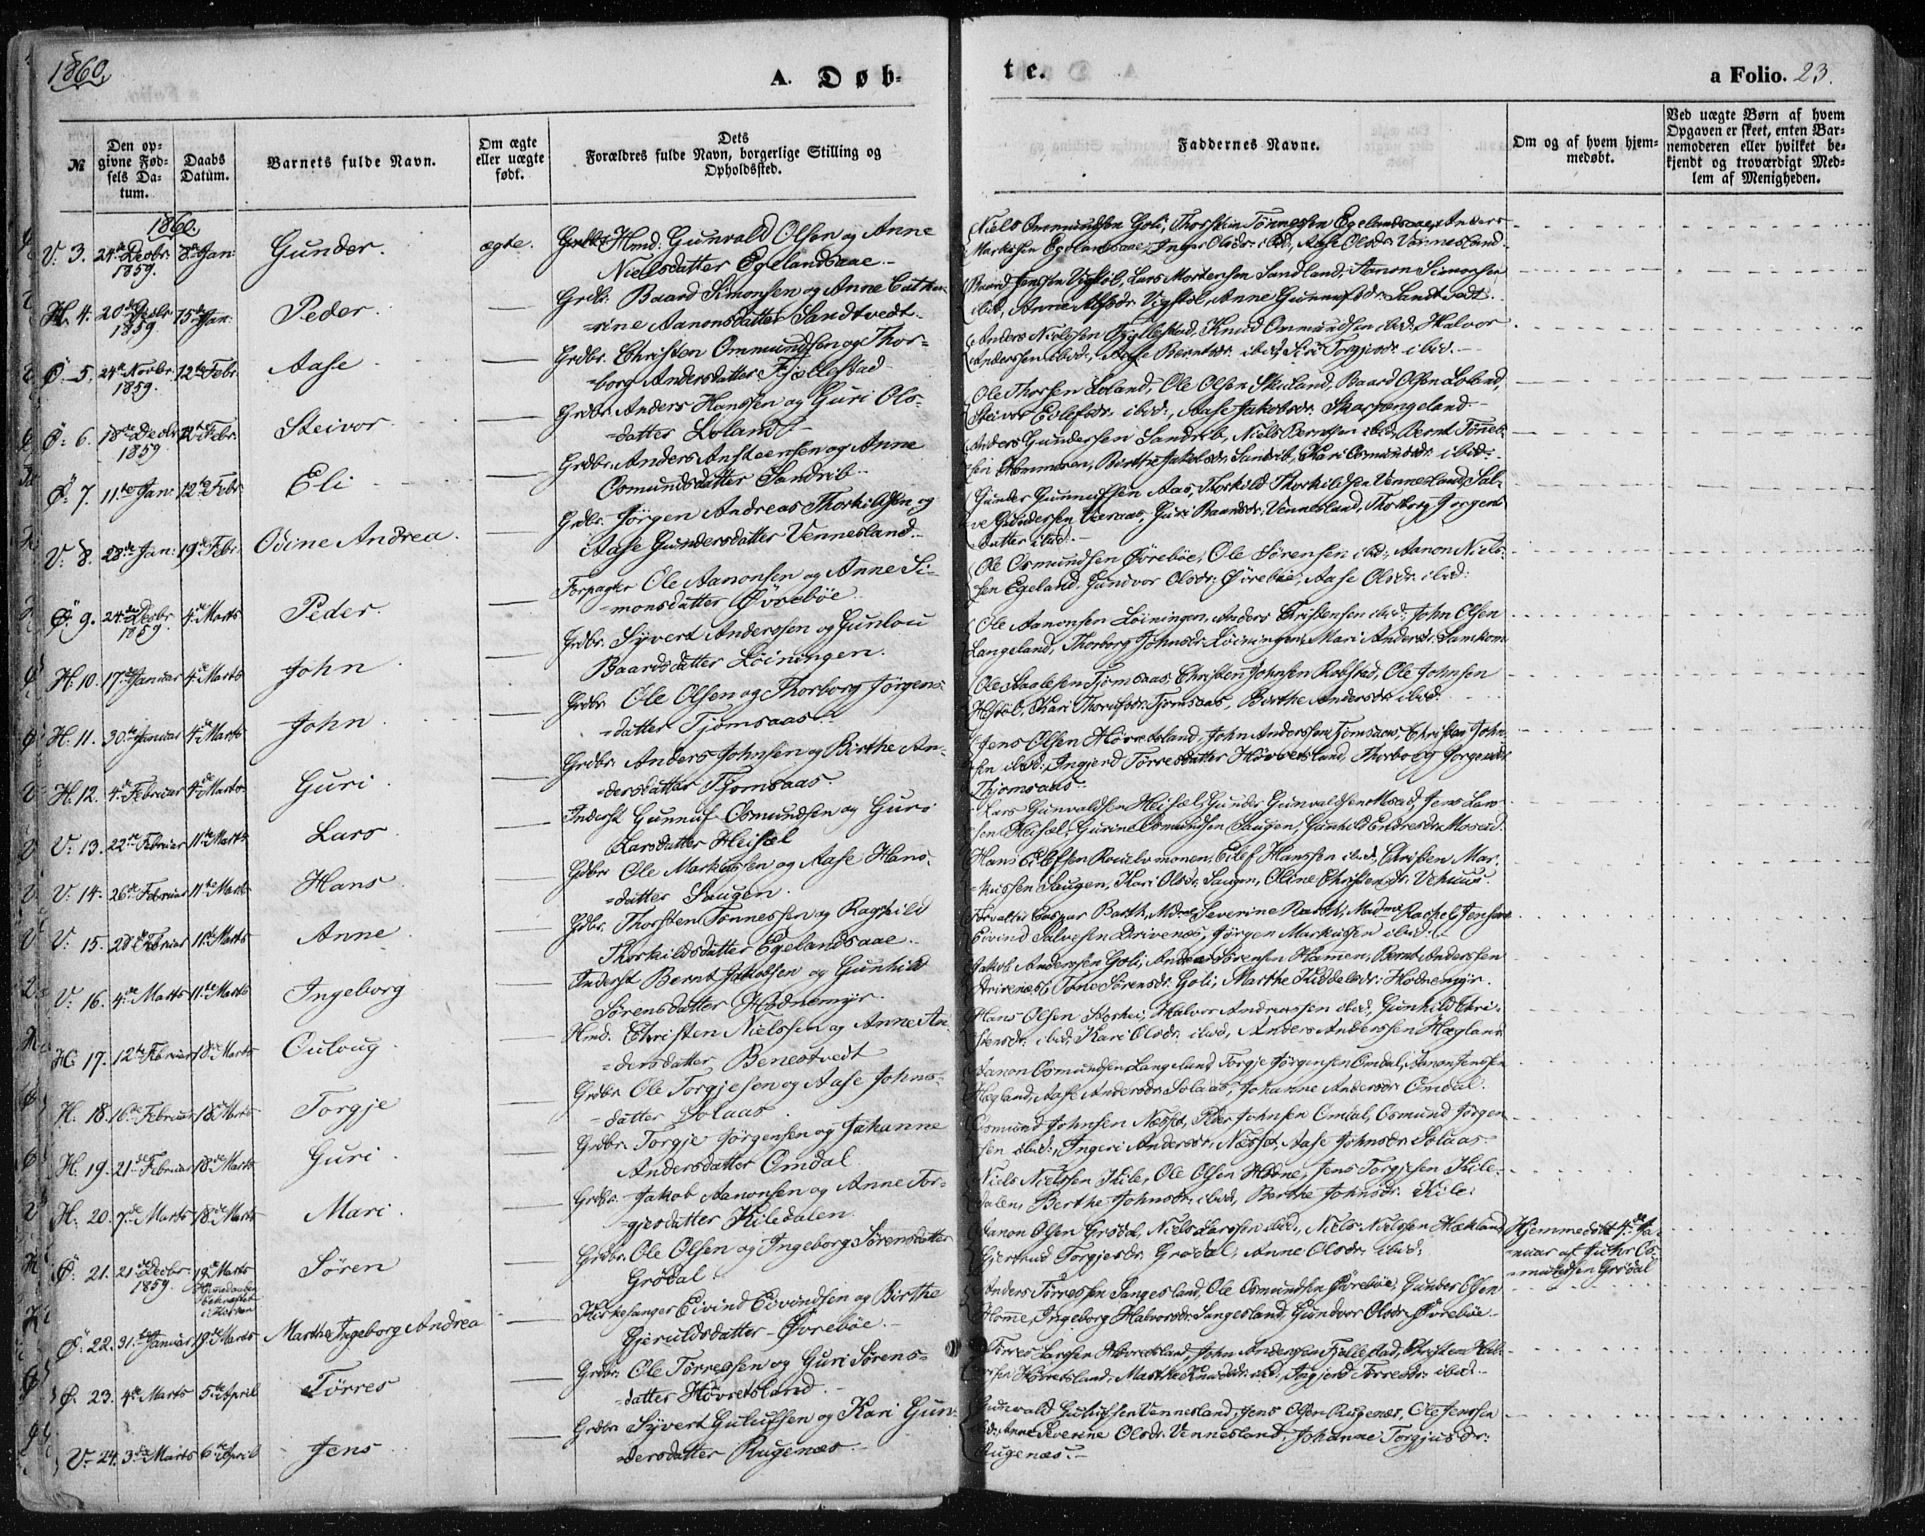 1860.
A. Døb-
te.
a Folio. 23.
№
Den op-
givne Fød-
sels Da-
tum.
Daabs
Datum.
Barnets fulde Navn.
Om ægte
eller uægte
født.
Dets
Forældres fulde Navn, borgerlige Stilling og
Opholdssted.
Faddernes Navne.
Om og af hvem hjem-
medøbt.
Ved uægte Børn af hvem
Opgaven er skeet, enten Bar-
nemoderen eller hvilket be-
kjendt og troværdigt Med-
lem af Menigheden.
1860.
V. 3. 24de Decbr. 1859. 8de Jan: Gunder. ægte. Hmd: Gunvald Olsen og Anne
Nielsdatter Egelandsaae.
Niels Ommundsen Goli, Thorstein Tønnessen Egelandsaae, Anders
Markussen Egelandsaae, Inger Olsdr. ibid, Aase Olsdr. Vennesland.
H. 4. 20de Decbr. 1859 15de Jan: Peder. Grdbr. Baard Simonsen og Anne Cath-
rine Aanonsdatter Sandtvedt.
Baard Jensen Vigstøl, Lars Mortensen Sandland, Aanon Simonsen
ibid, Anne Vigstøl, Anne Gunnufsdr. Sandtvedt.
Ø. 5. 24de Novbr. 1859. 12te Febr. Aase Grdbr. Christen Ommundsen og Thor-
borg Andersdatter Fjellestad.
Anders Nielsen Fjellestad, Knud Ommundsen ibid. Halvor
Anderssen ibid., Aase Berntsdr. ibid, Siri Torgjusdr. ibid.
Ø. 6. 18de Decbr. 1859 12te Febr. Steivor. Grdbr. Anders Hanssen og Guri Ols-
datter Loland.
Ole Thorsen Loland, Ole Olsen Skuland, Baard Olsen Loland
Steivor Eilefsdr. ibid., Aase Jakobsdr. Skarpengeland.
Ø. 7. 11te Jan: 12te Febr. Eli Grdbr. Anders Anstensen og Anne
Osmundsdatter Sandrib.
Anders Gundersen Sandrib, Niels Berntsen ibid, Bernt Tønnes-
sen Hommeren, Birthe Jakobsdr. Sandrib, Kari Osmundsdr. ibid.
V. 8. 28de Jan: 19de Febr. Odine Andrea. Grdbr. Jørgen Andreas Thorkildsen og
Aase Gundersdatter Vennesland.
Gunder Gunnufsen Aas, Thorkild Thorkildsen Vennesland, Sal-
ve Gundersen, Guri Baardsdr. Vennesland, Thorborg Jørgens-
datter ibid.
Ø. 9. 24de Decbr. 1859. 4de Marts Peder. Forpagter Ole Aanonsen og Anne Si-
monsdatter Øvrebøe.
Ole Osmundsen Øvrebøe, Ole Sørensen ibid., Aanon Niels-
sen Egeland. Gundvor Olsdr. Øvrebøe, Aase Olsdr. ibid.
H. 10. 17de Januar 4de Marts John Grdbr. Syvert Anderssen og Gunlou
Baardsdatter Løiningen.
Ole Aanonsen Løiningen, Anders Christensen ibid. John Olsen
Langeland, Thorborg Johnsdr. Løiningen, Mari Andersdr. Samkom
H. 11. 30te Januar 4de Marts John Grdbr. Ole Olsen og Thorborg Jørgens-
datter Tjomsaas.
Ole Tjomsaas, Christen Johnsen Robstad, Ole Johnsen
Kari Tjomsaas, Birthe Andersdr. ibid.
H. 12. 4de Februar 4de Marts Guri Grdbr. Anders Johnsen og Birthe An-
dersdatter Tjomsaas
Jens Olsen Høvretsland, John Anderssen Tjomsaas, Christen John-
sen ibid, Ingjerd Torresdatter Høvretsland, Thorborg Jørgensdr.
Tjomsaas.
V. 13. 22de Februar 11te Marts Lars Inderst Gunnuf Osmundsen og Guri
Larsdatter Heisæl
Lars Gunvaldsen Heisæl, Gunder Gunvaldsen Mosed, Jens Lars-
sen Heisæl, Gurine Osmundsen Saugen, Gunhild Endresdr. Mosed.
V. 14. 26de Februar 11te Marts Hans Gdbr. Ole Markussen og Aase Hans-
datter Saugen.
Hans Eilefsen, Eilef Hanssen ibid, Christen Mar-
kussen Saugen, Kari Olsdr. Saugen, Oline Christensdr. Vehuus.
V. 15. 28de Februar 11te Marts Anne Gdbr. Thorsten Tønnessen og Ragnild
Thorkildsdatter Egelandsaae.
Forvalter Caspar Barth, Severine Barth, Rachel Jensen
Eivind Salvesen Drivenæs, Jørgen Markussen ibid.
V. 16. 4de Marts 11te Marts Ingeborg Inderst Bernt Jakobsen og Gunhild
Sørensdatter Hodnemyr.
Jakob Anderssen Goli, Sørensen Hamen, Bernt Anderssen
Drivenæs, Tone Sørensdr. Goli, Marthe Hodnemyr.
H. 17. 12te Februar 18de Marts Oulaug Hmd. Christen Nielssen og Anne An-
dersdatter Benestvedt
Hans Olsen, Halvor Andreassen ibid, Gunhild Chri-
stensdr. ibid, Kari Olsdr. ibid, Anders Anderssen Hægland
H. 18. 16de Februar 18de Marts Torgje Grdbr. Ole Torgjesen og Aase Johns-
datter Solaas.
Aanon Osmundsen Langeland, Torgje Jørgensen Omdal, Aanon Jenssen
Hægland, Aase Andersdr. Solaas, Johanne Andersdr. Omdal.
H. 19. 21de Februar 18de Marts Guri Grdbr. Torgje Jørgensen og Johanne
Andersdatter Omdal
Osmund Johnsen, Peder Johnsen Omdal, Osmund Jørgen-
sen ibid, Ingeri Andersdr., Aase Johnsdr. Solaas
H. 20. 7de Marts 18de Marts Mari. Grdbr. Jakob Aanonsen og Anne Tor-
gjesdatter Kiledalen
Niels Nielssen Kile, Ole Olsen Hodne, Jens Torgjesen Kile-
dalen, Berthe Johnsdr. ibid, Berthe Johnsdr. Kile.
Ø. 21. 21de Decbr. 1859. 19de Marts Søren Grdbr. Ole Olsen og Ingeborg Sørensdatter
Grødal.
Aanon Olsen Grødal, Niels Larssen ibid., Niels Nielssen Hækland
Gjertrud Torgjesdr. Grødal, Anne Olsdr. ibid.
Hjemmedøbt 4de Ja-
nuar af Guthr. Os-
mundsen Grødal
Ø. 22. 31te Januar 19de Marts Marthe Ingeborg Andrea Kirkesanger Eivind Eivindsen og Birthe
Gjeruldsdatter Øvrebøe.
Anders Torressen Langesland, Ole Osmundsen Øvrebøe, Gunder Olsen
Homme, Ingeborg Halvorsdr. Langesland, Gundvor Olsdr. Øvrebøe
Ø. 23. 4de Marts 5te April Tørres Grdbr. Ole Tørressen og Guri Sørens-
datter Høvretsland.
Tørres Larssen Høvretsland, John Anderssen Fjellestad, Christen
Høvretsland, Marthe Knudsdr. ibid, Ingjerd Torresdr. ibid.
V. 24. 3de Marts 6te April Jens Grdbr. Syvert Gulufsen og Kari Gun-
dersdatter Rugenæs
Gunvald Gulufsen Vennesland, Jens Olsen Rugenæs, Ole Jenssen
ibid, Anne Severine Olsdr. Vennesland, Johanne Torgjusdr.
Rugenæs.